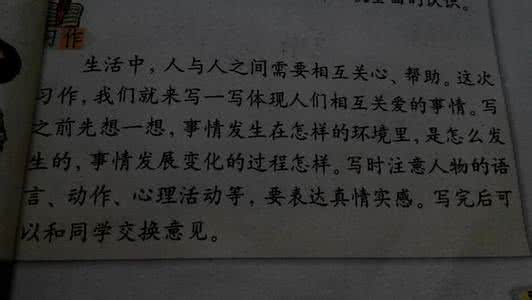 至面的认识。
习作
生活中，人与人之间需要相互关心、帮助。这次
习作，我们就来写一写体现人们相互关爱的事情。写
之前先想一想，事情发生在怎样的环境里，是怎么发
生的，事情发展变化的过程怎样。写时注意人物的语
言、动作、心理活动等，要表达真情实感。写完后可
以和同学交换意见。